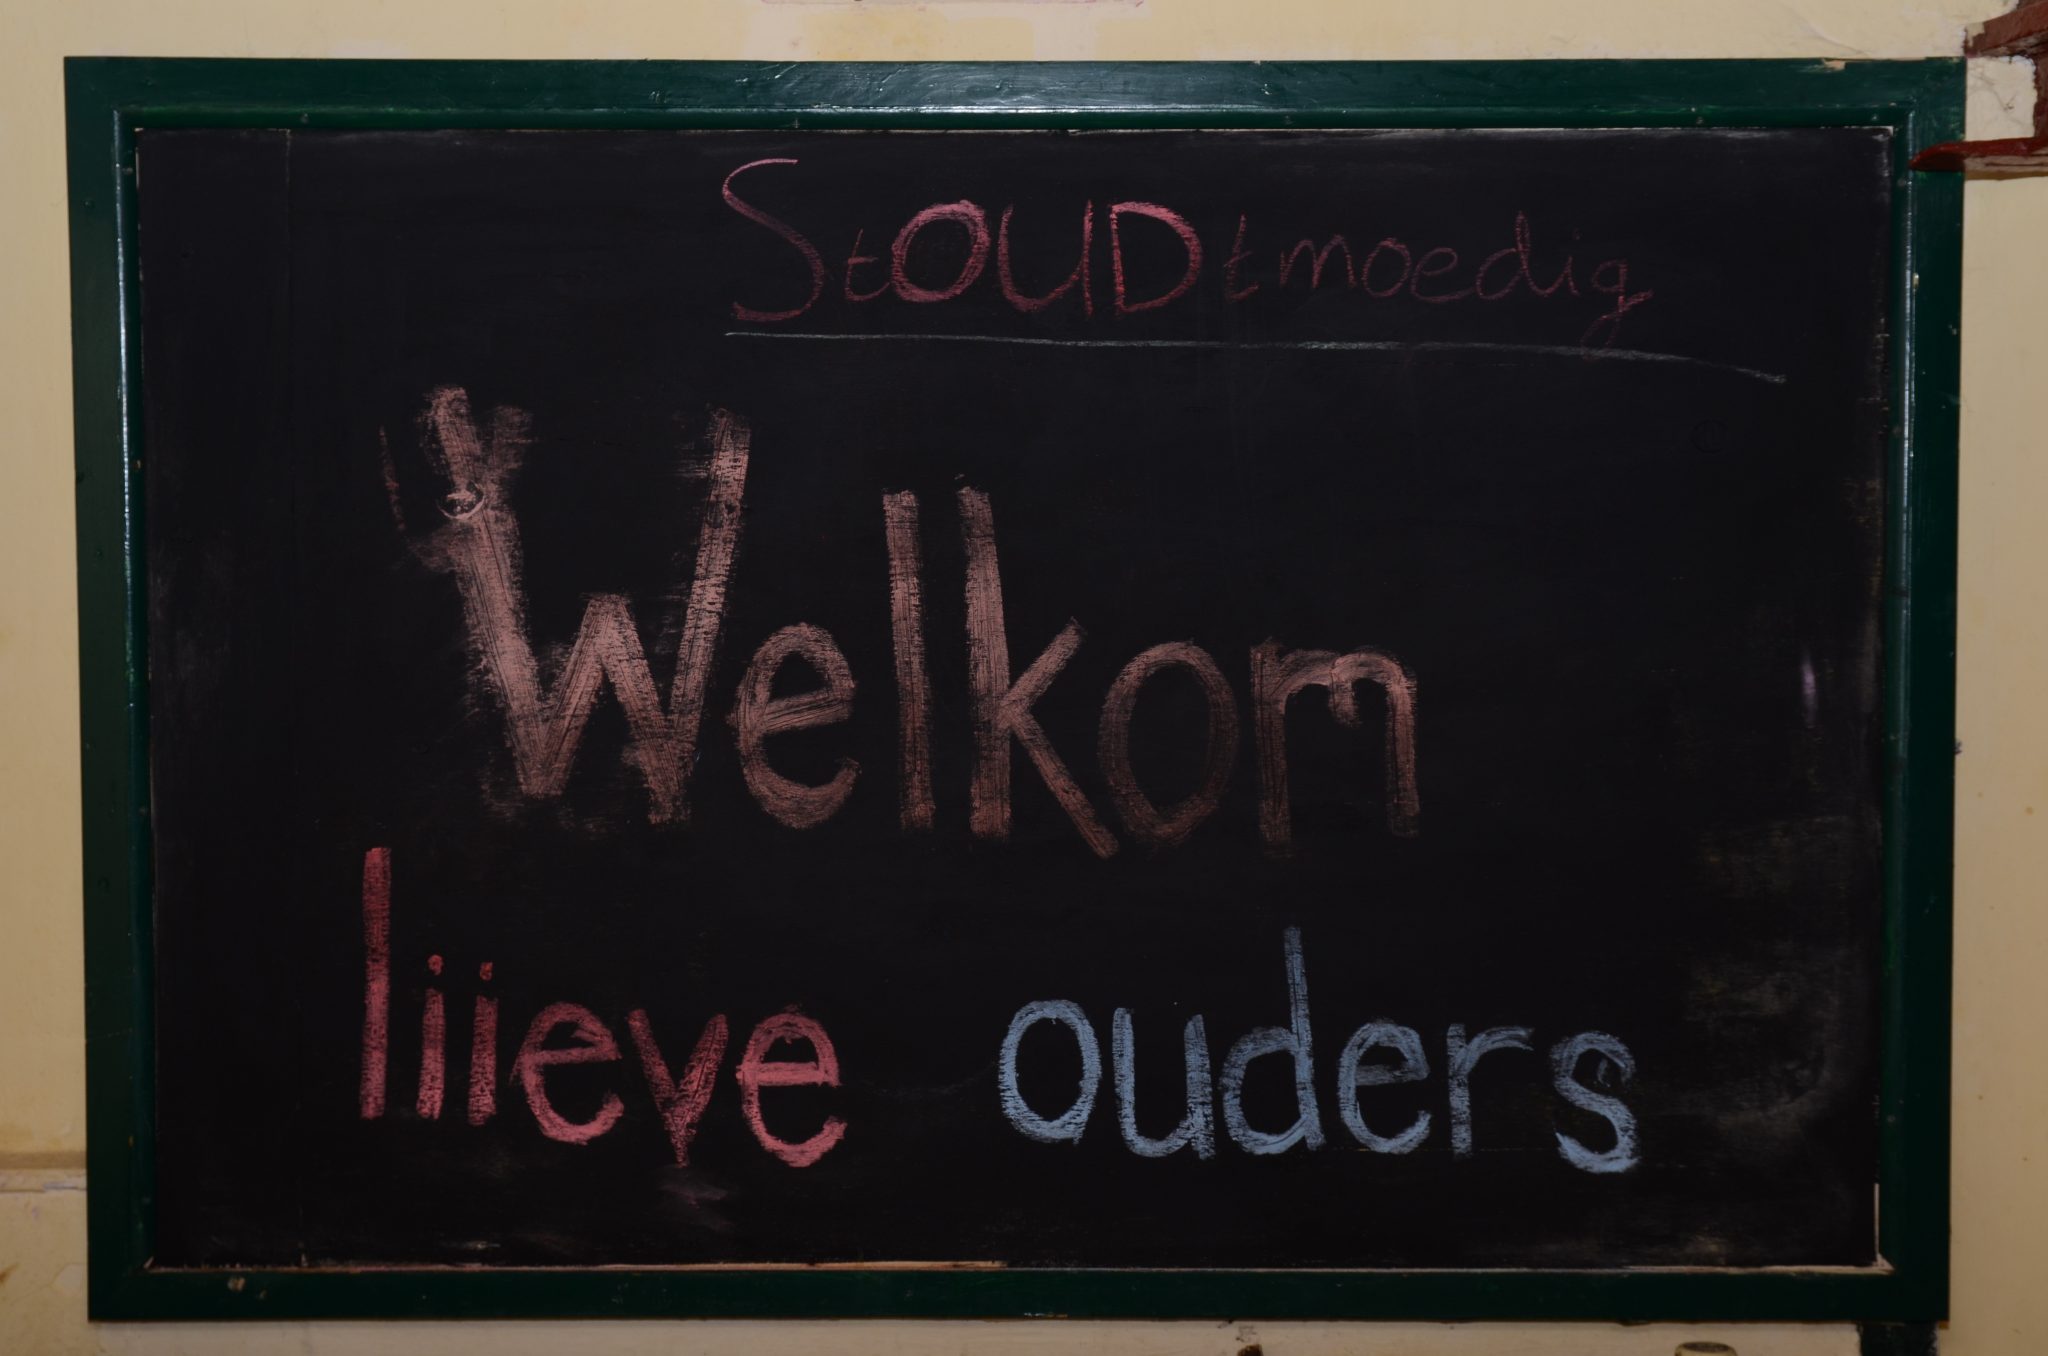 StOUDtmoedig
Welkom
liieve ouders